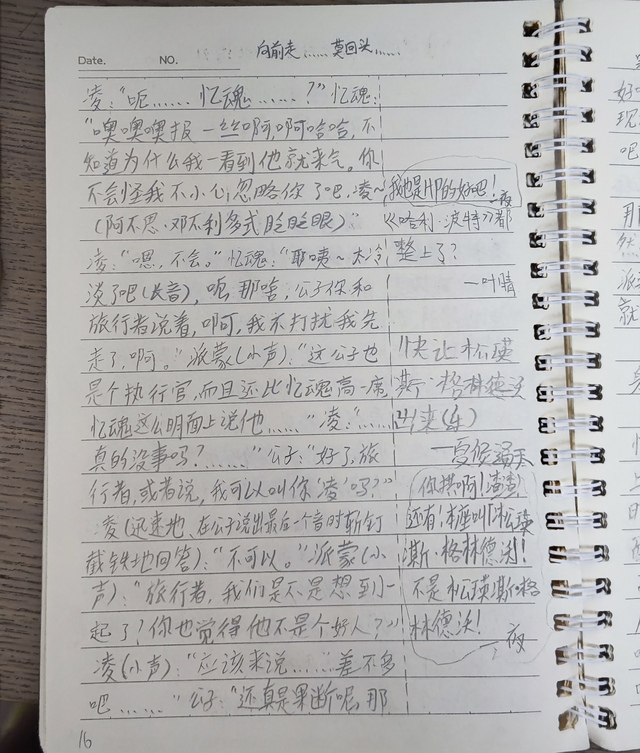 Date.
NO.
向前走……莫回头……
凌:“呃…… 忆魂……?”忆魂:
“噢噢噢报一丝啊啊哈哈,不
知道为什么我一看到他就来气。你
不会怪我不小心忽略你了吧,凌~
(阿不思·邓不利多式眨眨眼)”
凌:“嗯,不会。”忆魂:“耶咦~太冷
淡了吧(长音),呃,那啥,公子你和
旅行者说着,啊,我不打扰我先
走了,啊。”派蒙(小声):“这公子也
是个执行官,而且还比忆魂高一席,
忆魂这么明面上说他……”凌:“……
真的没事吗?……”公子:“好了,旅
行者,或者说,我可以叫你‘凌’吗?”
凌(迅速地、在公子说出最后一个音时斩钉
截铁地回答):“不可以。”派蒙(小
声):“旅行者,我们是不是想到一
起了?你也觉得他不是个好人?”
凌(小声):“应该来说……差不多
吧……”公子:“还真是果断呢,那
16
我也是HP的好吧!
一夜
《哈利·波特》都
整上了?
一叶晴
快让
斯·格林德沃
出来(乐)
你
还有!
斯·格林德沃!
不是
林德沃!
一夜